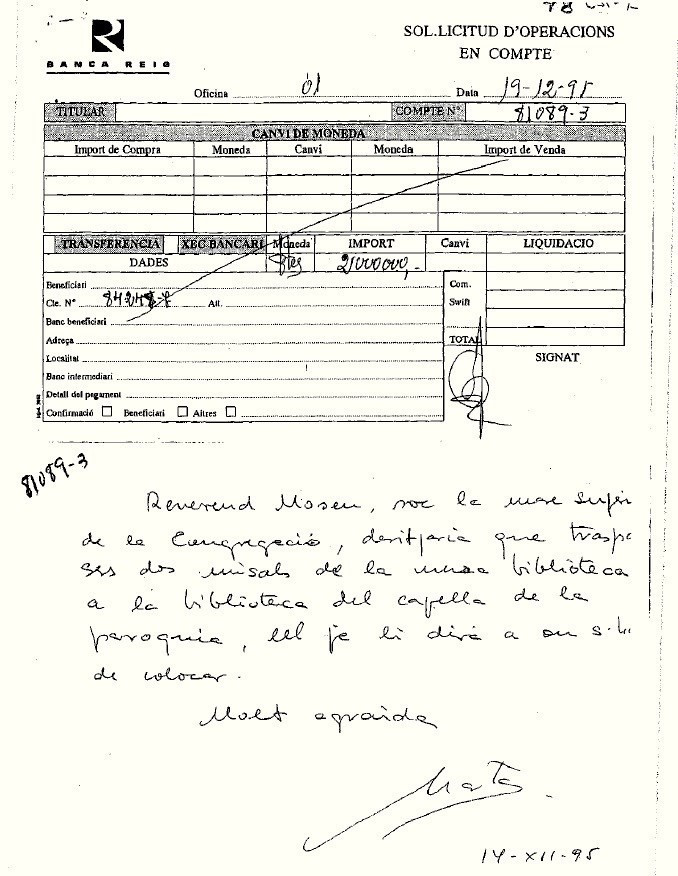 SOL.LICITUD D'OPERACIONS
EN COMPTE
BANCA REIG
Oficina 01 Data 19-12-95
TITULAR COMPTE Nº 81089-3
CANVI DE MONEDA
Import de Compra Moneda Canvi Moneda Import de Venda
TRANSFERENCIA XEC BANCARI Moneda IMPORT Canvi LIQUIDACIO
DADES Ptes 2000000,-
Beneficiari Com.
Cte. Nº Att. Swift
Banc beneficiari
Adreça TOTAL
Localitat SIGNAT
Banc intermediari
Detall del pegament
Confirmació Beneficiari Altres
81089-3
Reverend Mosen, soc la mare Super
de la Congregació, desitjaria que traspa
ses dos misals de la meva biblioteca
a la biblioteca del capella de la
paroquia, ell ja li dirà a on s'ha
de colocar.
Molt agraida
Marta.
14-XII-95